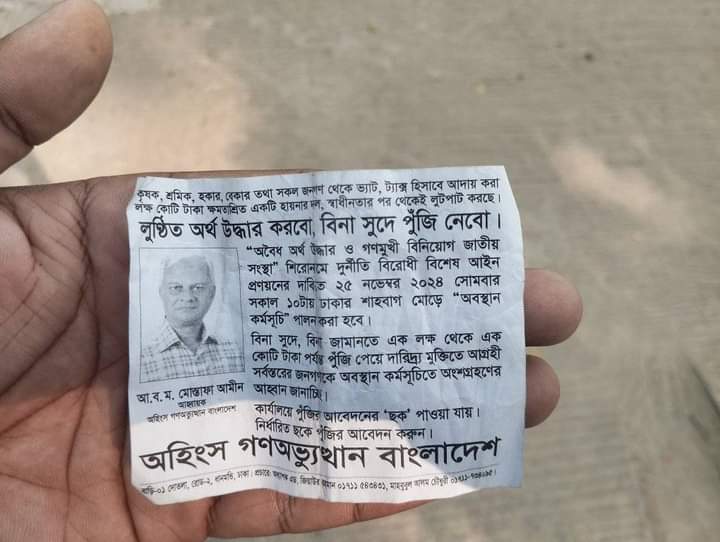 কৃষক, শ্রমিক, হকার, বেকার তথা সকল জনগণ থেকে ভ্যাট, ট্যাক্স হিসাবে আদায় করা
লক্ষ কোটি টাকা ক্ষমতাশ্রিত একটি হায়নার দল, স্বাধীনতার পর থেকেই লুটপাট করছে।
লুণ্ঠিত অর্থ উদ্ধার করবো, বিনা সুদে পুঁজি নেবো।
"অবৈধ অর্থ উদ্ধার ও গণমুখী বিনিয়োগ জাতীয়
সংস্থা" শিরোনামে দুর্নীতি বিরোধী বিশেষ আইন
প্রণয়নের দাবিতে ২৫ নভেম্বর ২০২৪ সোমবার
সকাল ১০টায় ঢাকার শাহবাগ মোড়ে "অবস্থান
কর্মসূচি" পালন করা হবে।
বিনা সুদে, বিনা জামানতে এক লক্ষ থেকে এক
কোটি টাকা পর্যন্ত পুঁজি পেয়ে দারিদ্র্য মুক্তিতে আগ্রহী
সর্বস্তরের জনগণকে অবস্থান কর্মসূচিতে অংশগ্রহণের
আহ্বান জানাচ্ছি।
আ.ব.ম. মোস্তাফা আমীন
আহ্বায়ক
অহিংস গণঅভ্যুত্থান বাংলাদেশ
কার্যালয়ে পুঁজির আবেদনের 'ছক' পাওয়া যায়।
নির্ধারিত ছকে পুঁজির আবেদন করুন।
অহিংস গণঅভ্যুত্থান বাংলাদেশ
বাড়ি-০১ দোতলা, রোড-২, ধানমন্ডি, ঢাকা। প্রচারে: জিয়াউর রহমান ০১৭১১ ৫৪৩৪৩১, মাহবুবুল আলম চৌধুরী